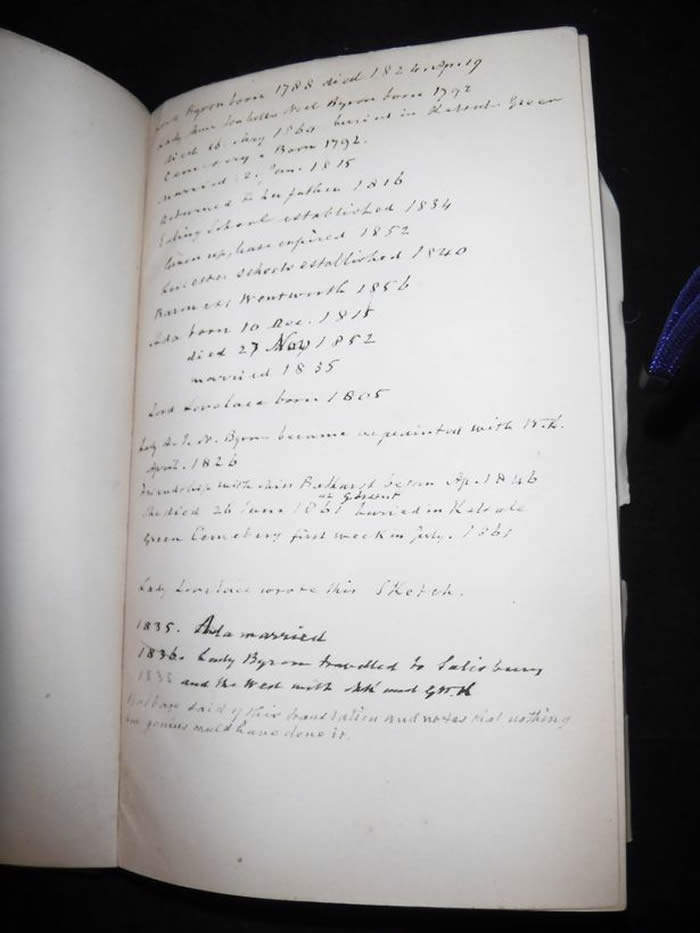 Lord Byron born 1788 died 1824. Ap. 19
Lady Anne Isabella Noel Byron born 1792
died 16 May 1860 buried in Kensal Green
Cemetery. Born 1792.
Married 2. Jan. 1815
Returned to her father 1816
Ealing School established 1834
Given up, lease expired 1852
Leicester Schools established 1840
Baroness Wentworth 1856
Ada born 10 Dec. 1815
died 27 Nov 1852
married 1835
Lord Lovelace born 1805
Lady A. I. N. Byron became acquainted with
April. 1826
Friendship with Miss began Ap. 1846
She died 26 June 1861 buried in Kelsale
Green Cemetery first week in July. 1861
Lady Lovelace wrote this Sketch.
1835. Ada married
1836. Lady Byron travelled to Salisbury
1835 and the West with and
Babbage said of this translation and notes that nothing
but genius could have done it.